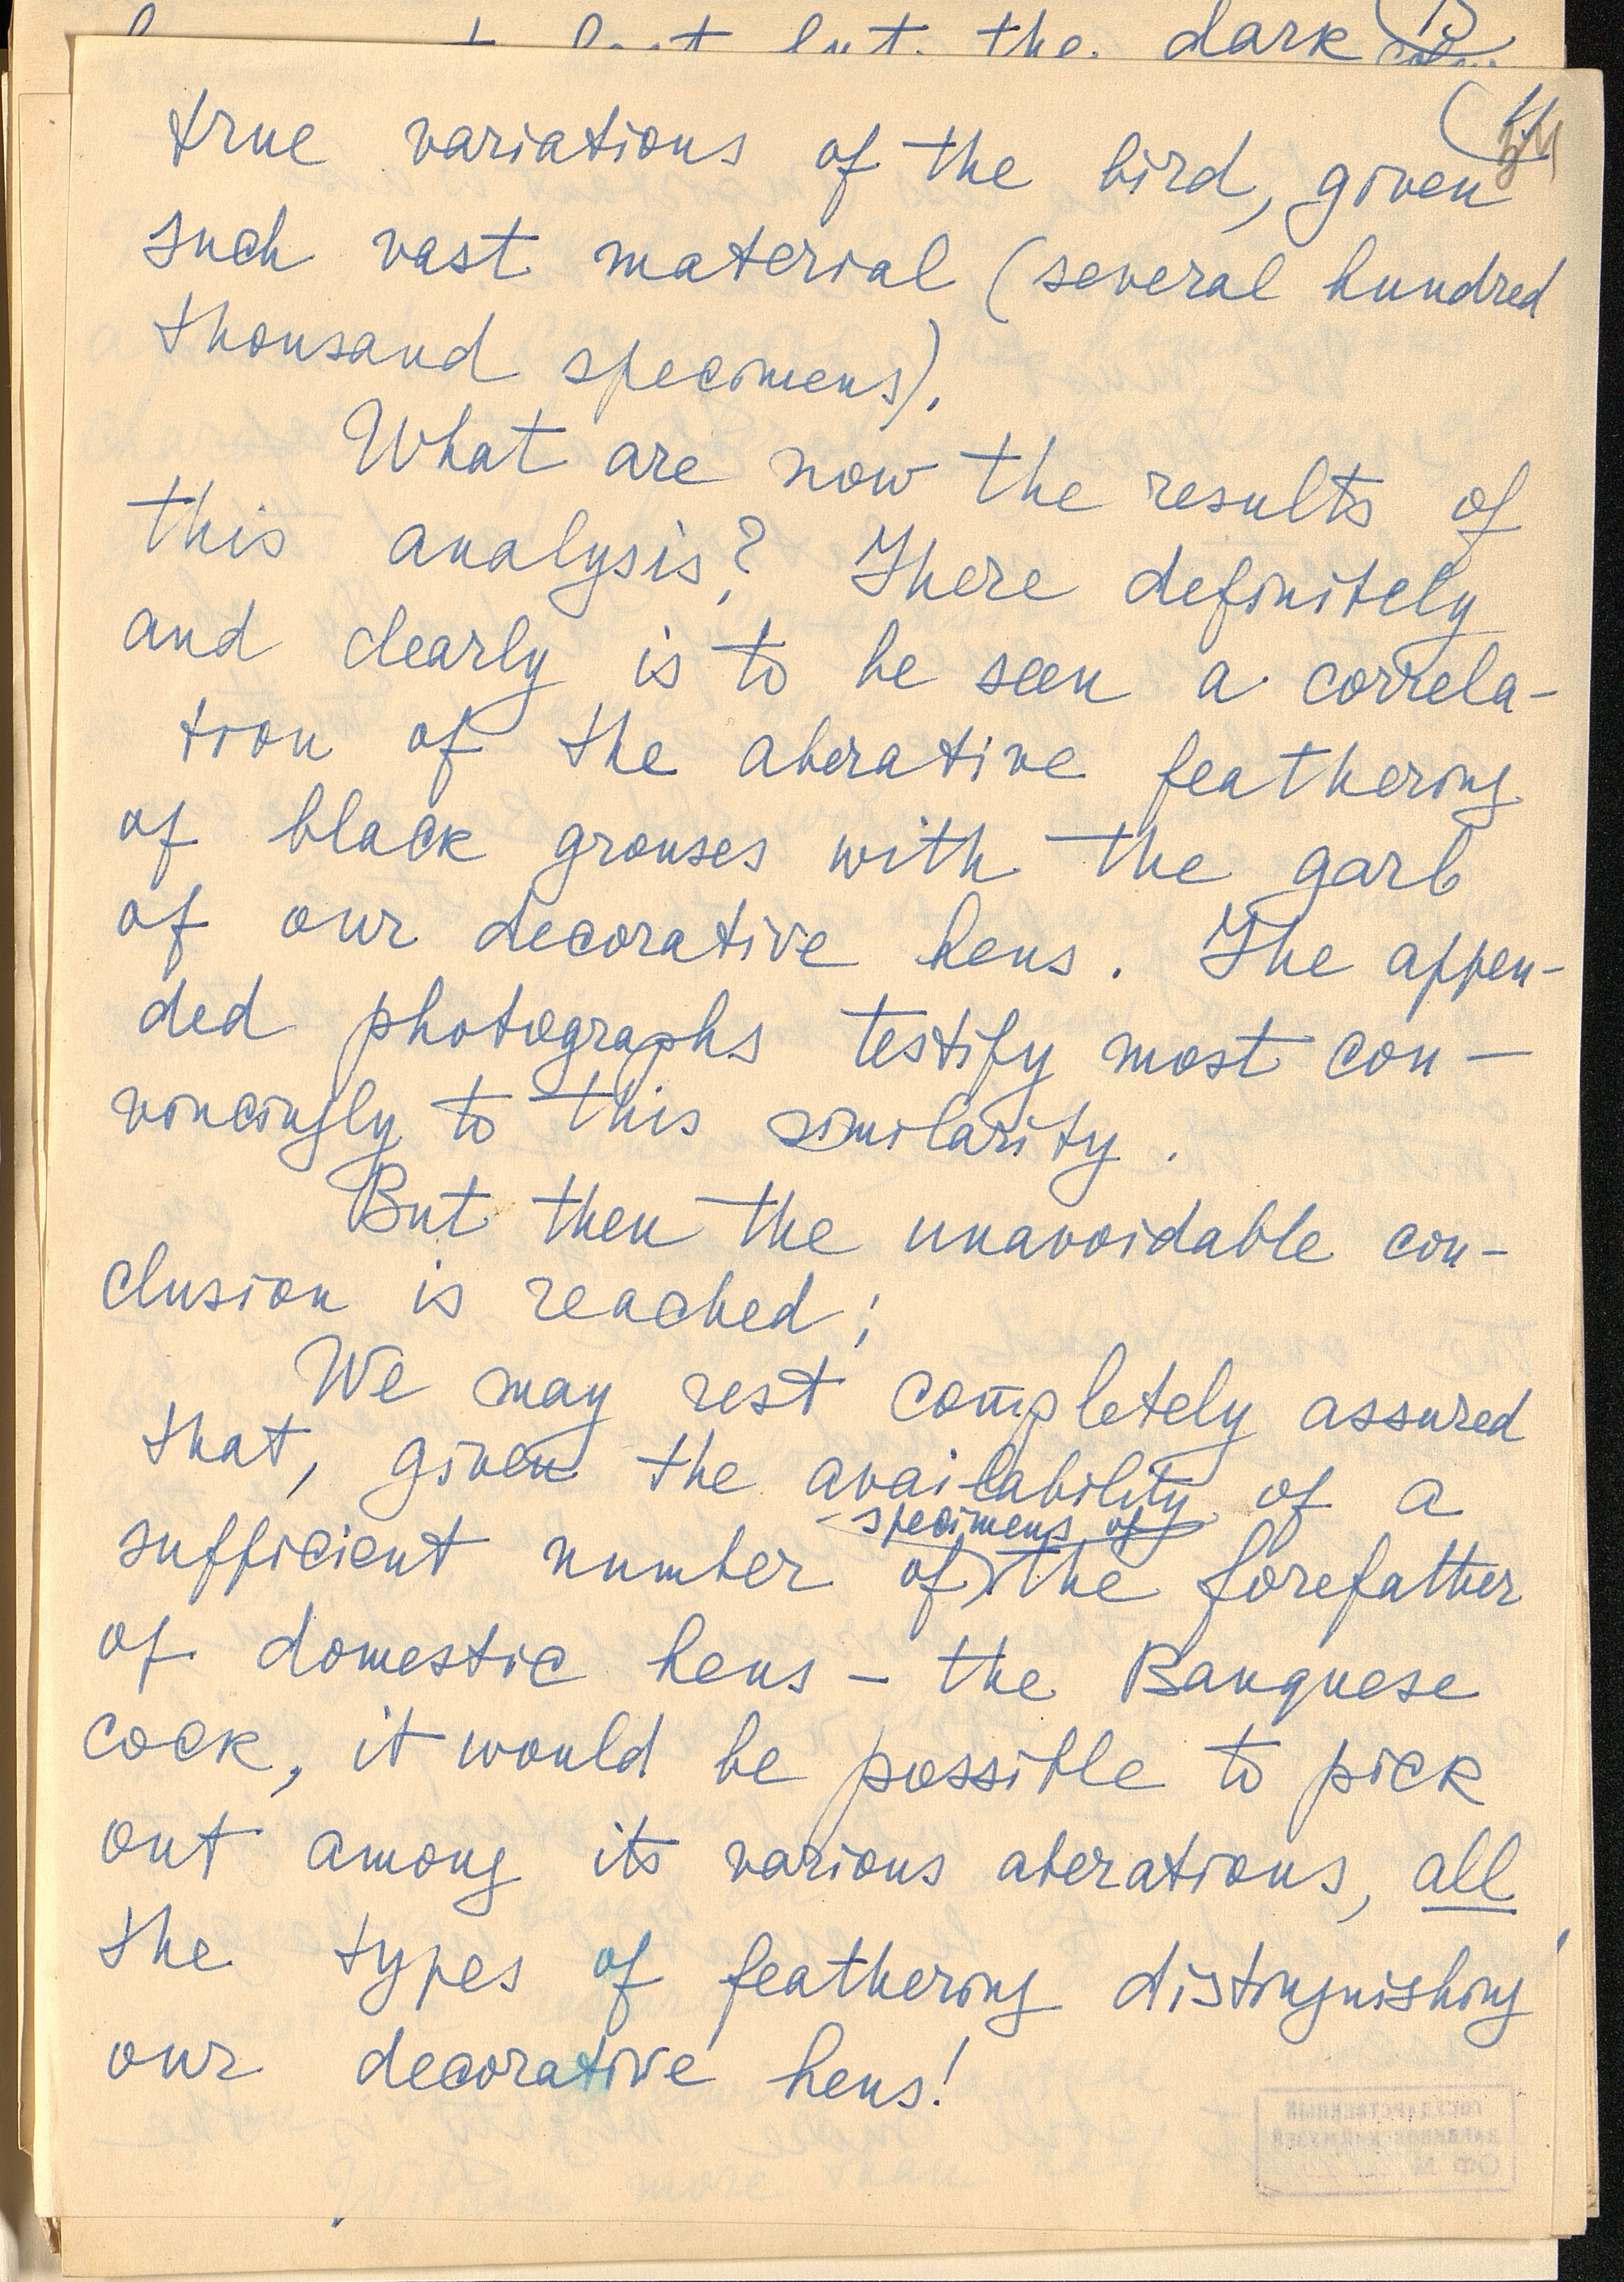 dark
true variations of the bird, given
such vast material (several hundred
thousand specimens).
What are now the results of
this analysis? There definitely
and clearly is to be seen a correla-
tion of the aberative feathering
of black grouses with the garb
of our decorative hens. The appen-
ded photographs testify most con-
vincingly to this similarity.
But then the unavoidable con-
clusion is reached:
We may rest completely assured
that, given the availability of a
specimens of
sufficient number of the forefather
of domestic hens - the Banquese
cock, it would be possible to pick
out among its various aberations, all
the types of feathering distinguishing
our decorative hens!